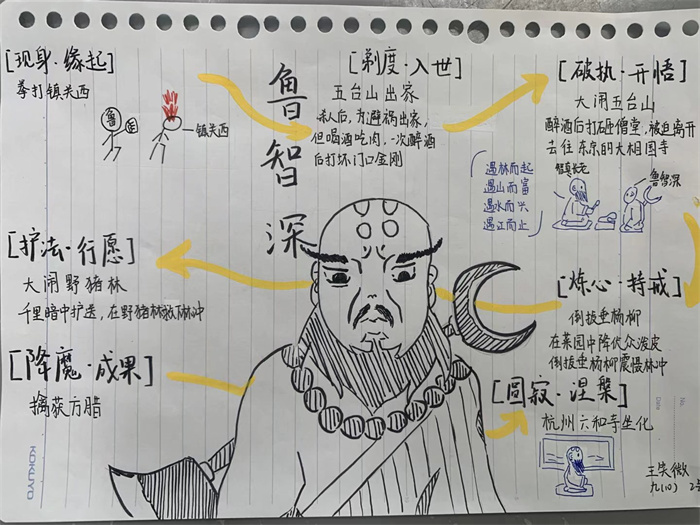 [现身·缘起]
拳打镇关西
鲁
镇关西
鲁智深
[剃度·入世]
五台山出家
杀人后,为避祸出家,
但喝酒吃肉,一次醉酒
后打坏门口金刚
[破执·开悟]
大闹五台山
醉酒后打砸僧堂,被迫离开
去往东京的大相国寺
遇林而起
遇山而富
遇水而兴
遇江而止
智真长老
鲁智深
[炼心·持戒]
倒拔垂杨柳
在菜园中降伏众泼皮
倒拔垂杨柳震慑林冲
[护法·行愿]
大闹野猪林
千里暗中护送,在野猪林救林冲
[降魔·成果]
擒获方腊
[圆寂·涅槃]
杭州六和寺坐化
王笑微
九(10) 2
KOKUYO